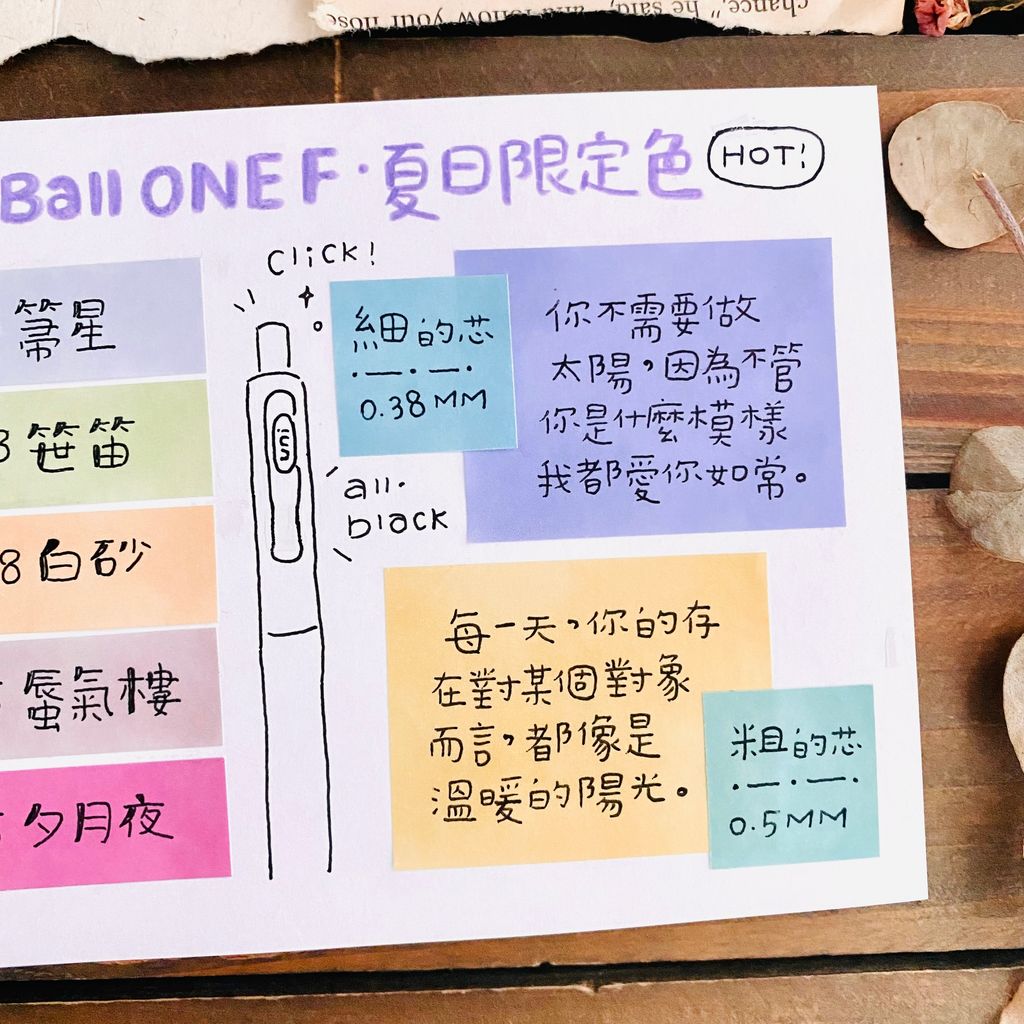 chance," he said, "and follow your nose
Ball ONE F・夏日限定色
HOT!
箒星
3 笹笛
8 白砂
蜃氣樓
夕月夜
Click!
all.
black
細的芯
0.38 MM
你不需要做
太陽，因為不管
你是什麼模樣
我都愛你如常。
每一天，你的存
在對某個對象
而言，都像是
溫暖的陽光。
粗的芯
0.5 MM